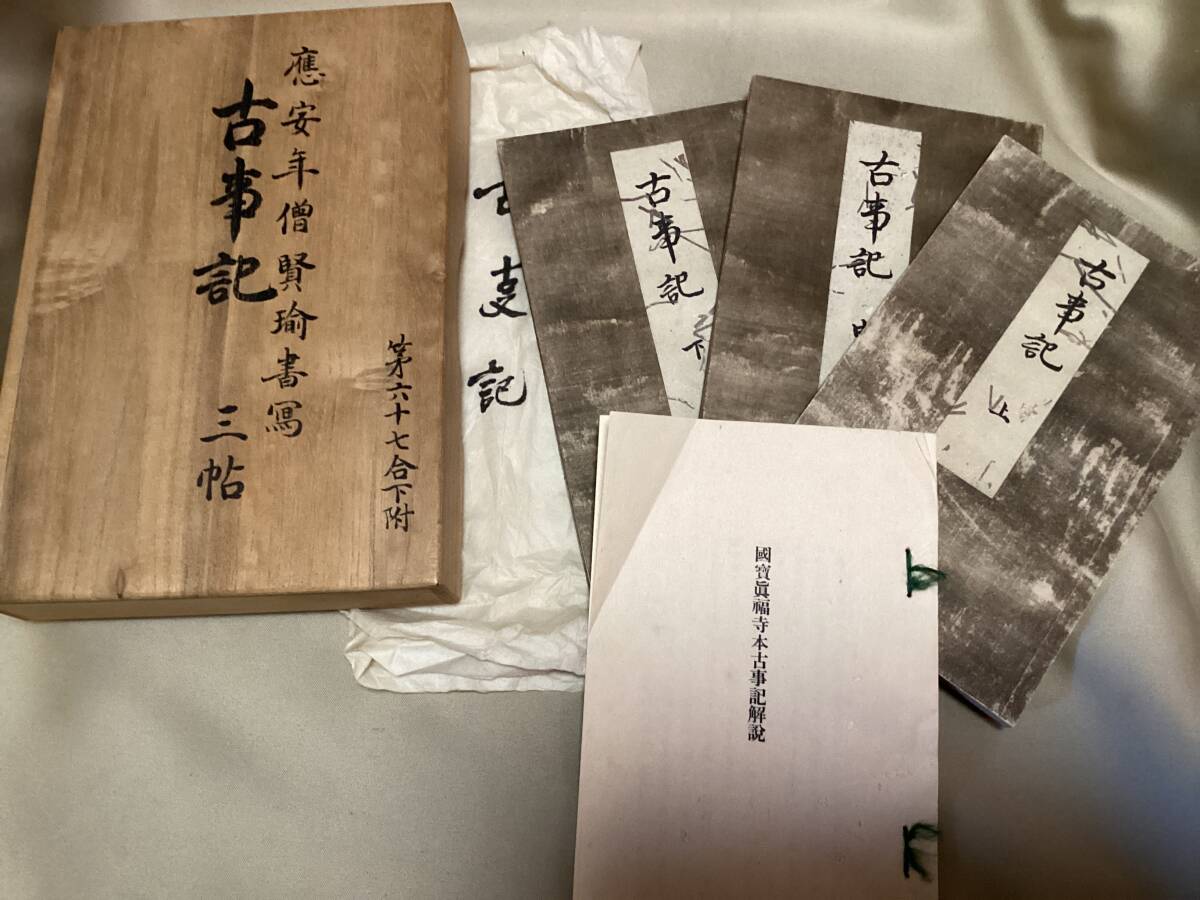 應安年僧賢瑜書寫
古事記 三帖
第六十七合下附
古
支
記
古事記 下
古事記 中
古事記 上
國寶眞福寺本古事記解說